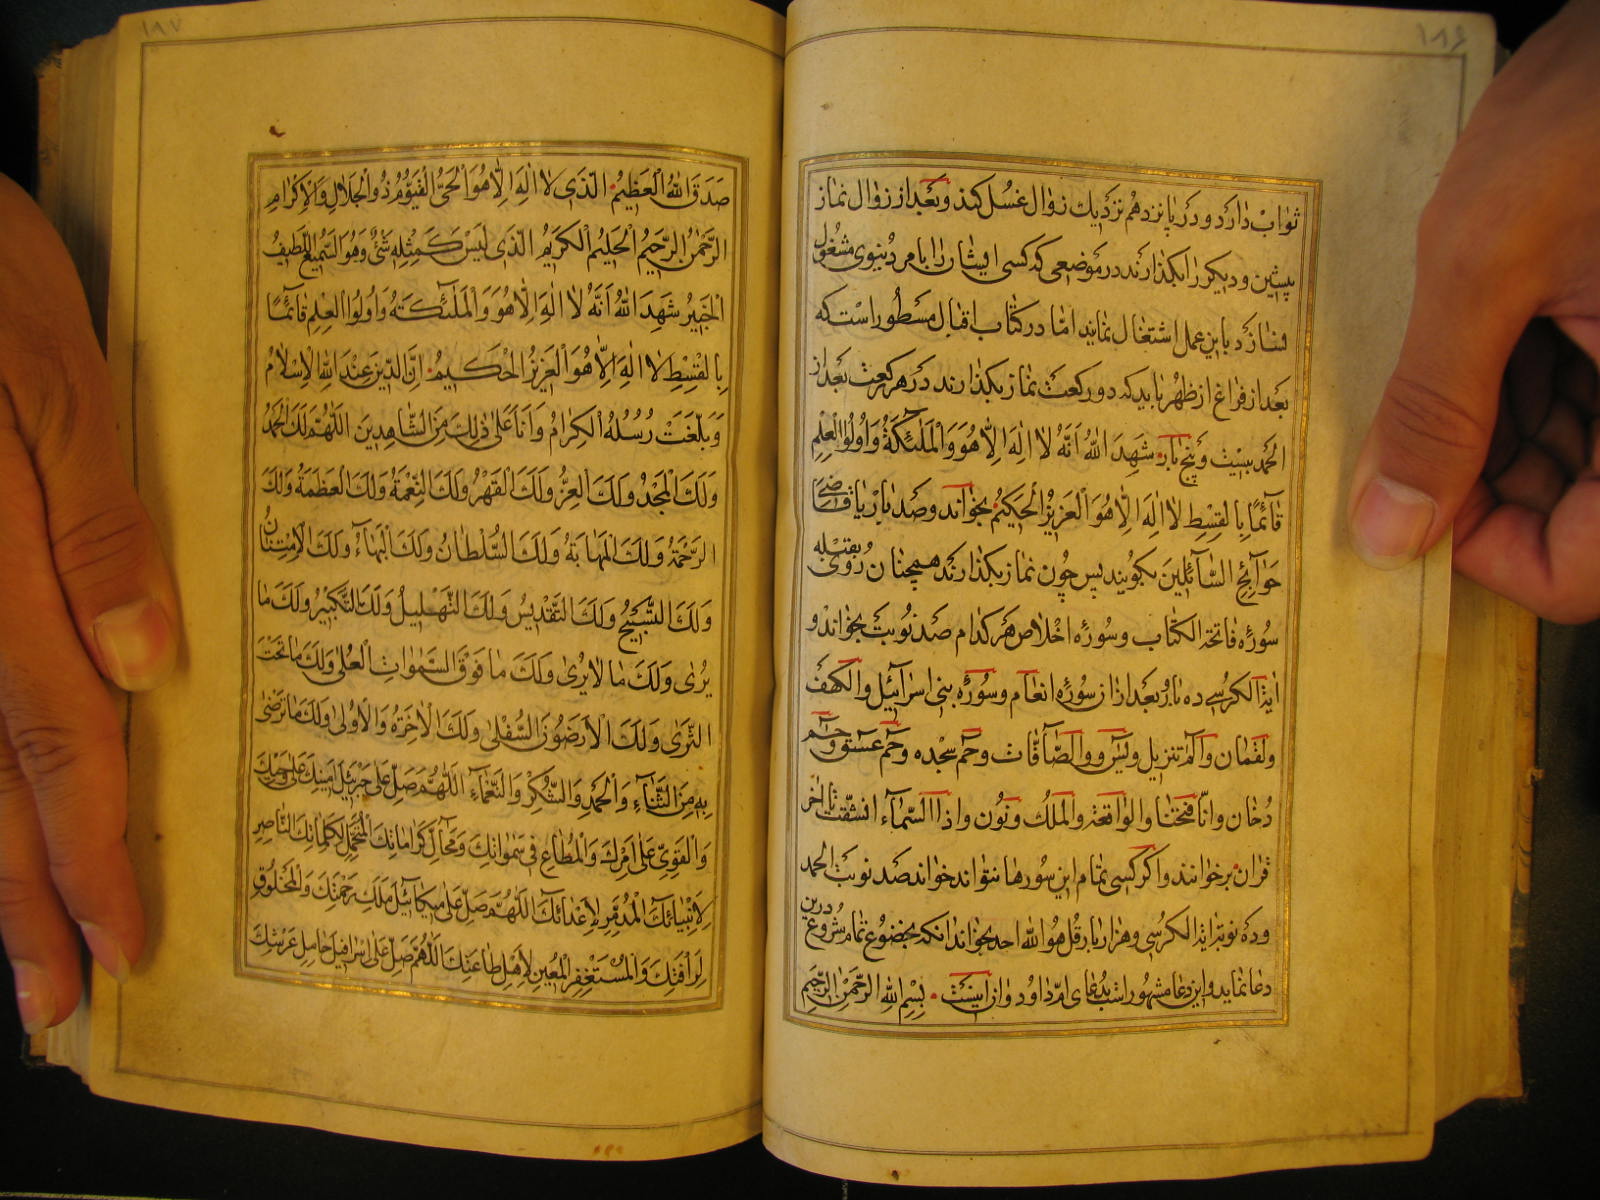 ۱۸۶
ثواب دارد و در پانزدهم نزدیك زوال غسل کند و بعد از زوال نماز
پیشین و دیگر را بگذارند در موضعی که کسی ایشان را بامر دنیوی مشغول
نسازد باین عمل اشتغال نمایند امّا در کتاب اقبال مسطور است که
بعد از فراغ از ظهر باید که دو رکعت نماز بگذارند در هر رکعت بعد از
الحمد بیست و پنج بار شَهِدَ اللّٰهُ اَنَّهُ لَا اِلٰهَ اِلَّا هُوَ وَالْمَلٰٓئِكَةُ وَاُولُوا الْعِلْمِ
قَآئِمًا بِالْقِسْطِ لَا اِلٰهَ اِلَّا هُوَ الْعَزِیزُ الْحَكِیمُ بخواند و صد بار یا قَاضِیَ
حَوَآئِجِ السَّآئِلِینَ بگویند پس چون نماز بگذارند همچنان روی بقبله
سورهٔ فاتحة الکتاب و سورهٔ اخلاص هر کدام صد نوبت بخواند و
ایة الکرسی ده بار و بعد از ان سورهٔ انعام و سورهٔ بنی اسرآئیل و الکهف
و لقمان و الم تنزیل و یٓس و والصّآفّات و حٓم سجده و حٓم عسق و حٓم
دخان و انّا فتحنا و الواقعة و الملك و نون و اذا السّمآء انشقّت تا اخر
قران برخوانند و اگر کسی تمام این سورها نتواند خواند صد نوبت الحمد
و ده نوبت ایة الکرسی و هزار بار قل هو اللّٰه احد بخواند انکه بخضوع تمام شروع درین
دعا نماید و این دعا مشهور است بدعای امّ داود و ان اینست بِسْمِ اللّٰهِ الرَّحْمٰنِ الرَّحِیمِ
۱۸۷
صَدَقَ اللّٰهُ الْعَظِیمُ الَّذِی لَا اِلٰهَ اِلَّا هُوَ الْحَیُّ الْقَیُّومُ ذُو الْجَلَالِ وَالْاِكْرَامِ
الرَّحْمٰنُ الرَّحِیمُ الْحَلِیمُ الْكَرِیمُ الَّذِی لَیْسَ كَمِثْلِهِ شَیْءٌ وَهُوَ السَّمِیعُ اللَّطِیفُ
الْخَبِیرُ شَهِدَ اللّٰهُ اَنَّهُ لَا اِلٰهَ اِلَّا هُوَ وَالْمَلٰٓئِكَةُ وَاُولُوا الْعِلْمِ قَآئِمًا
بِالْقِسْطِ لَا اِلٰهَ اِلَّا هُوَ الْعَزِیزُ الْحَكِیمُ اِنَّ الدِّینَ عِنْدَ اللّٰهِ الْاِسْلَامُ
وَبَلَّغَتْ رُسُلُهُ الْكِرَامُ وَاَنَا عَلٰی ذٰلِكَ مِنَ الشَّاهِدِینَ اللّٰهُمَّ لَكَ الْحَمْدُ
وَلَكَ الْمَجْدُ وَلَكَ الْعِزُّ وَلَكَ الْقَهْرُ وَلَكَ النِّعْمَةُ وَلَكَ الْعَظَمَةُ وَلَكَ
الرَّحْمَةُ وَلَكَ الْمَهَابَةُ وَلَكَ السُّلْطَانُ وَلَكَ الْبَهَآءُ وَلَكَ الْاِمْتِنَانُ
وَلَكَ التَّسْبِیحُ وَلَكَ التَّقْدِیسُ وَلَكَ التَّهْلِیلُ وَلَكَ التَّكْبِیرُ وَلَكَ مَا
یُرٰی وَلَكَ مَا لَا یُرٰی وَلَكَ مَا فَوْقَ السَّمٰوَاتِ الْعُلٰی وَلَكَ مَا تَحْتَ
الثَّرٰی وَلَكَ الْاَرَضُونَ السُّفْلٰی وَلَكَ الْاٰخِرَةُ وَالْاُولٰی وَلَكَ مَا تَرْضٰی
بِهِ مِنَ الثَّنَآءِ وَالْحَمْدِ وَالشُّكْرِ وَالنَّعْمَآءِ اَللّٰهُمَّ صَلِّ عَلٰی جَبْرَئِیلَ اَمِینِكَ عَلٰی وَحْیِكَ
وَالْقَوِیِّ عَلٰی اَمْرِكَ وَالْمُطَاعِ فِی سَمٰوَاتِكَ وَمَحَالِّ كَرَامَاتِكَ الْمُتَحَمِّلِ لِكَلِمَاتِكَ النَّاصِرِ
لِاَنْبِیَائِكَ الْمُدَمِّرِ لِاَعْدَائِكَ اَللّٰهُمَّ صَلِّ عَلٰی مِیكَآئِیلَ مَلَكِ رَحْمَتِكَ وَالْمَخْلُوقِ
لِرَأْفَتِكَ وَالْمُسْتَغْفِرِ الْمُعِینِ لِاَهْلِ طَاعَتِكَ اَللّٰهُمَّ صَلِّ عَلٰی اِسْرَافِیلَ حَامِلِ عَرْشِكَ